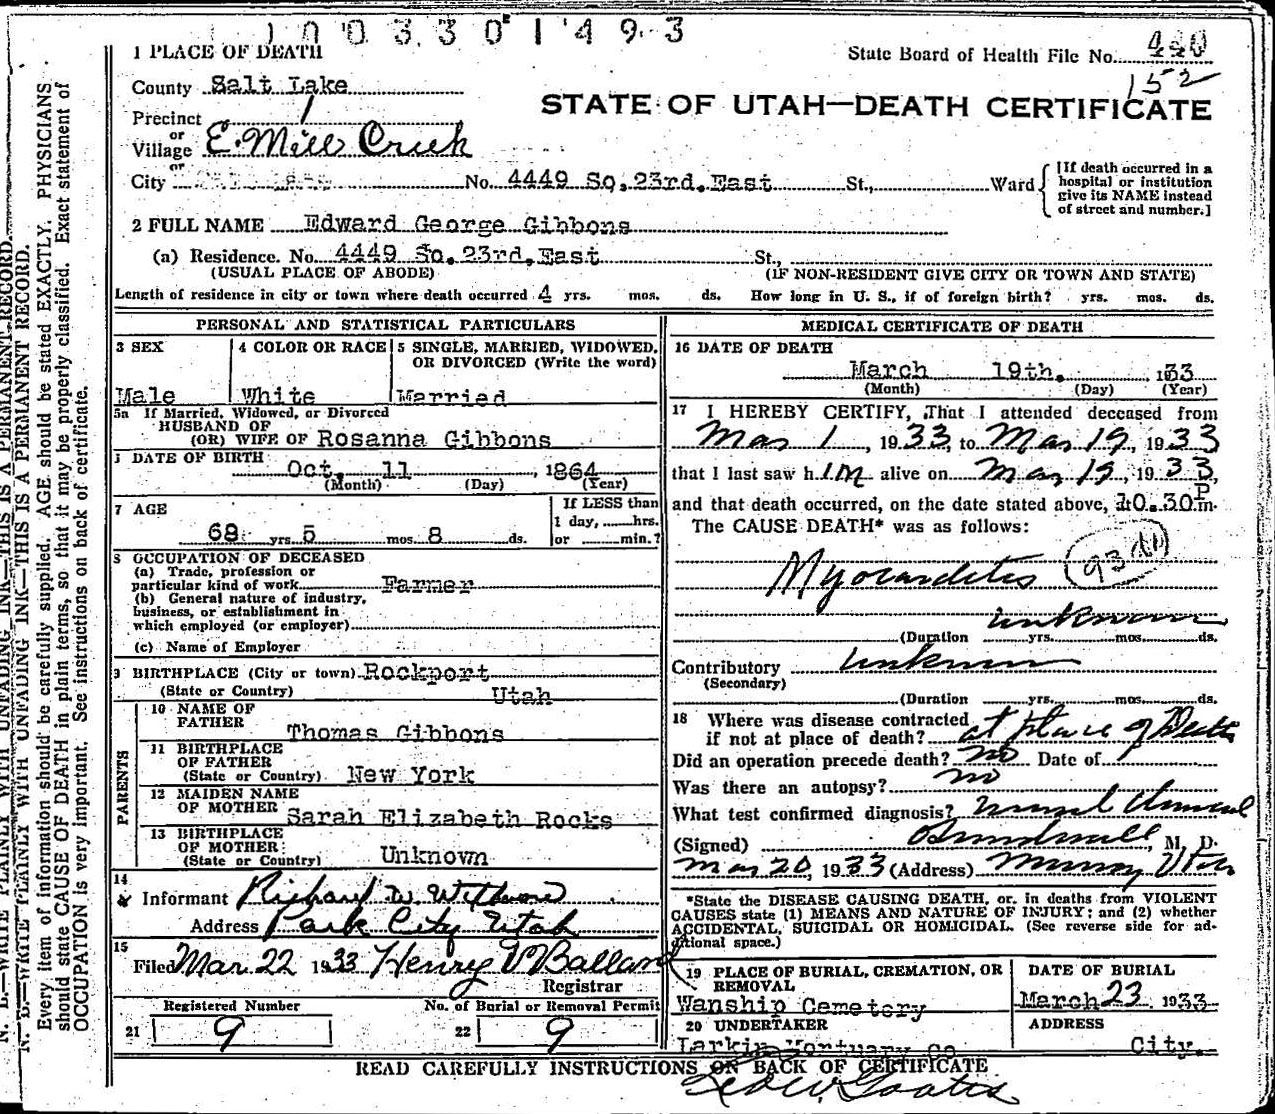 1003301493
1 PLACE OF DEATH
State Board of Health File No. 440
152
County Salt Lake
STATE OF UTAH—DEATH CERTIFICATE
Precinct 1
or
Village E. Mill Creek
or
City No. 4449 So. 23rd. East St., Ward
[If death occurred in a hospital or institution give its NAME instead of street and number.]
2 FULL NAME Edward George Gibbons
(a) Residence. No. 4449 So. 23rd. East St.,
(USUAL PLACE OF ABODE) (IF NON-RESIDENT GIVE CITY OR TOWN AND STATE)
Length of residence in city or town where death occurred 4 yrs. mos. ds. How long in U. S., if of foreign birth? yrs. mos. ds.
PERSONAL AND STATISTICAL PARTICULARS
3 SEX
Male
4 COLOR OR RACE
White
5 SINGLE, MARRIED, WIDOWED,
OR DIVORCED (Write the word)
Married
5a If Married, Widowed, or Divorced
HUSBAND OF
(OR) WIFE OF Rosanna Gibbons
DATE OF BIRTH
Oct. 11, 1864
(Month) (Day) (Year)
7 AGE
68 yrs 5 mos 8 ds.
If LESS than
1 day, hrs.
or min.?
8 OCCUPATION OF DECEASED
(a) Trade, profession or
particular kind of work Farmer
(b) General nature of industry,
business, or establishment in
which employed (or employer)
(c) Name of Employer
9 BIRTHPLACE (City or town) Rockport
(State or Country) Utah
PARENTS
10 NAME OF
FATHER Thomas Gibbons
11 BIRTHPLACE
OF FATHER
(State or Country) New York
12 MAIDEN NAME
OF MOTHER Sarah Elizabeth Rocks
13 BIRTHPLACE
OF MOTHER
(State or Country) Unknown
14
Informant Richard W.
Address Park City Utah
15
Filed Mar. 22 1933 Henry V Ballard
Registrar
Registered Number
21 9
No. of Burial or Removal Permit
22 9
MEDICAL CERTIFICATE OF DEATH
16 DATE OF DEATH
March 19th. 1933
(Month) (Day) (Year)
17 I HEREBY CERTIFY, That I attended deceased from
Mar 1, 1933, to Mar 19, 1933
that I last saw him alive on Mar 19, 1933,
and that death occurred, on the date stated above, 10.30 P m.
The CAUSE DEATH* was as follows:
Myocarditis
unknown
(Duration yrs. mos. ds.
Contributory unknown
(Secondary)
(Duration yrs. mos. ds.
18 Where was disease contracted
if not at place of death? at place of Death
Did an operation precede death? no Date of
Was there an autopsy? no
What test confirmed diagnosis?
(Signed) , M. D.
Mar 20, 1933 (Address) Murray Utah
*State the DISEASE CAUSING DEATH, or, in deaths from VIOLENT
CAUSES state (1) MEANS AND NATURE OF INJURY; and (2) whether
ACCIDENTAL, SUICIDAL OR HOMICIDAL. (See reverse side for ad-
ditional space.)
19 PLACE OF BURIAL, CREMATION, OR
REMOVAL
Wanship Cemetery
DATE OF BURIAL
March 23 1933
20 UNDERTAKER
Larkin Mortuary Co
ADDRESS
City.
READ CAREFULLY INSTRUCTIONS ON BACK OF CERTIFICATE
N. B.—WRITE PLAINLY WITH UNFADING INK—THIS IS A PERMANENT RECORD.
N. B.—WRITE PLAINLY WITH UNFADING INK—THIS IS A PERMANENT RECORD.
Every item of information should be carefully supplied. AGE should be stated EXACTLY. PHYSICIANS
should state CAUSE OF DEATH in plain terms, so that it may be properly classified. Exact statement of
OCCUPATION is very important. See instructions on back of certificate.